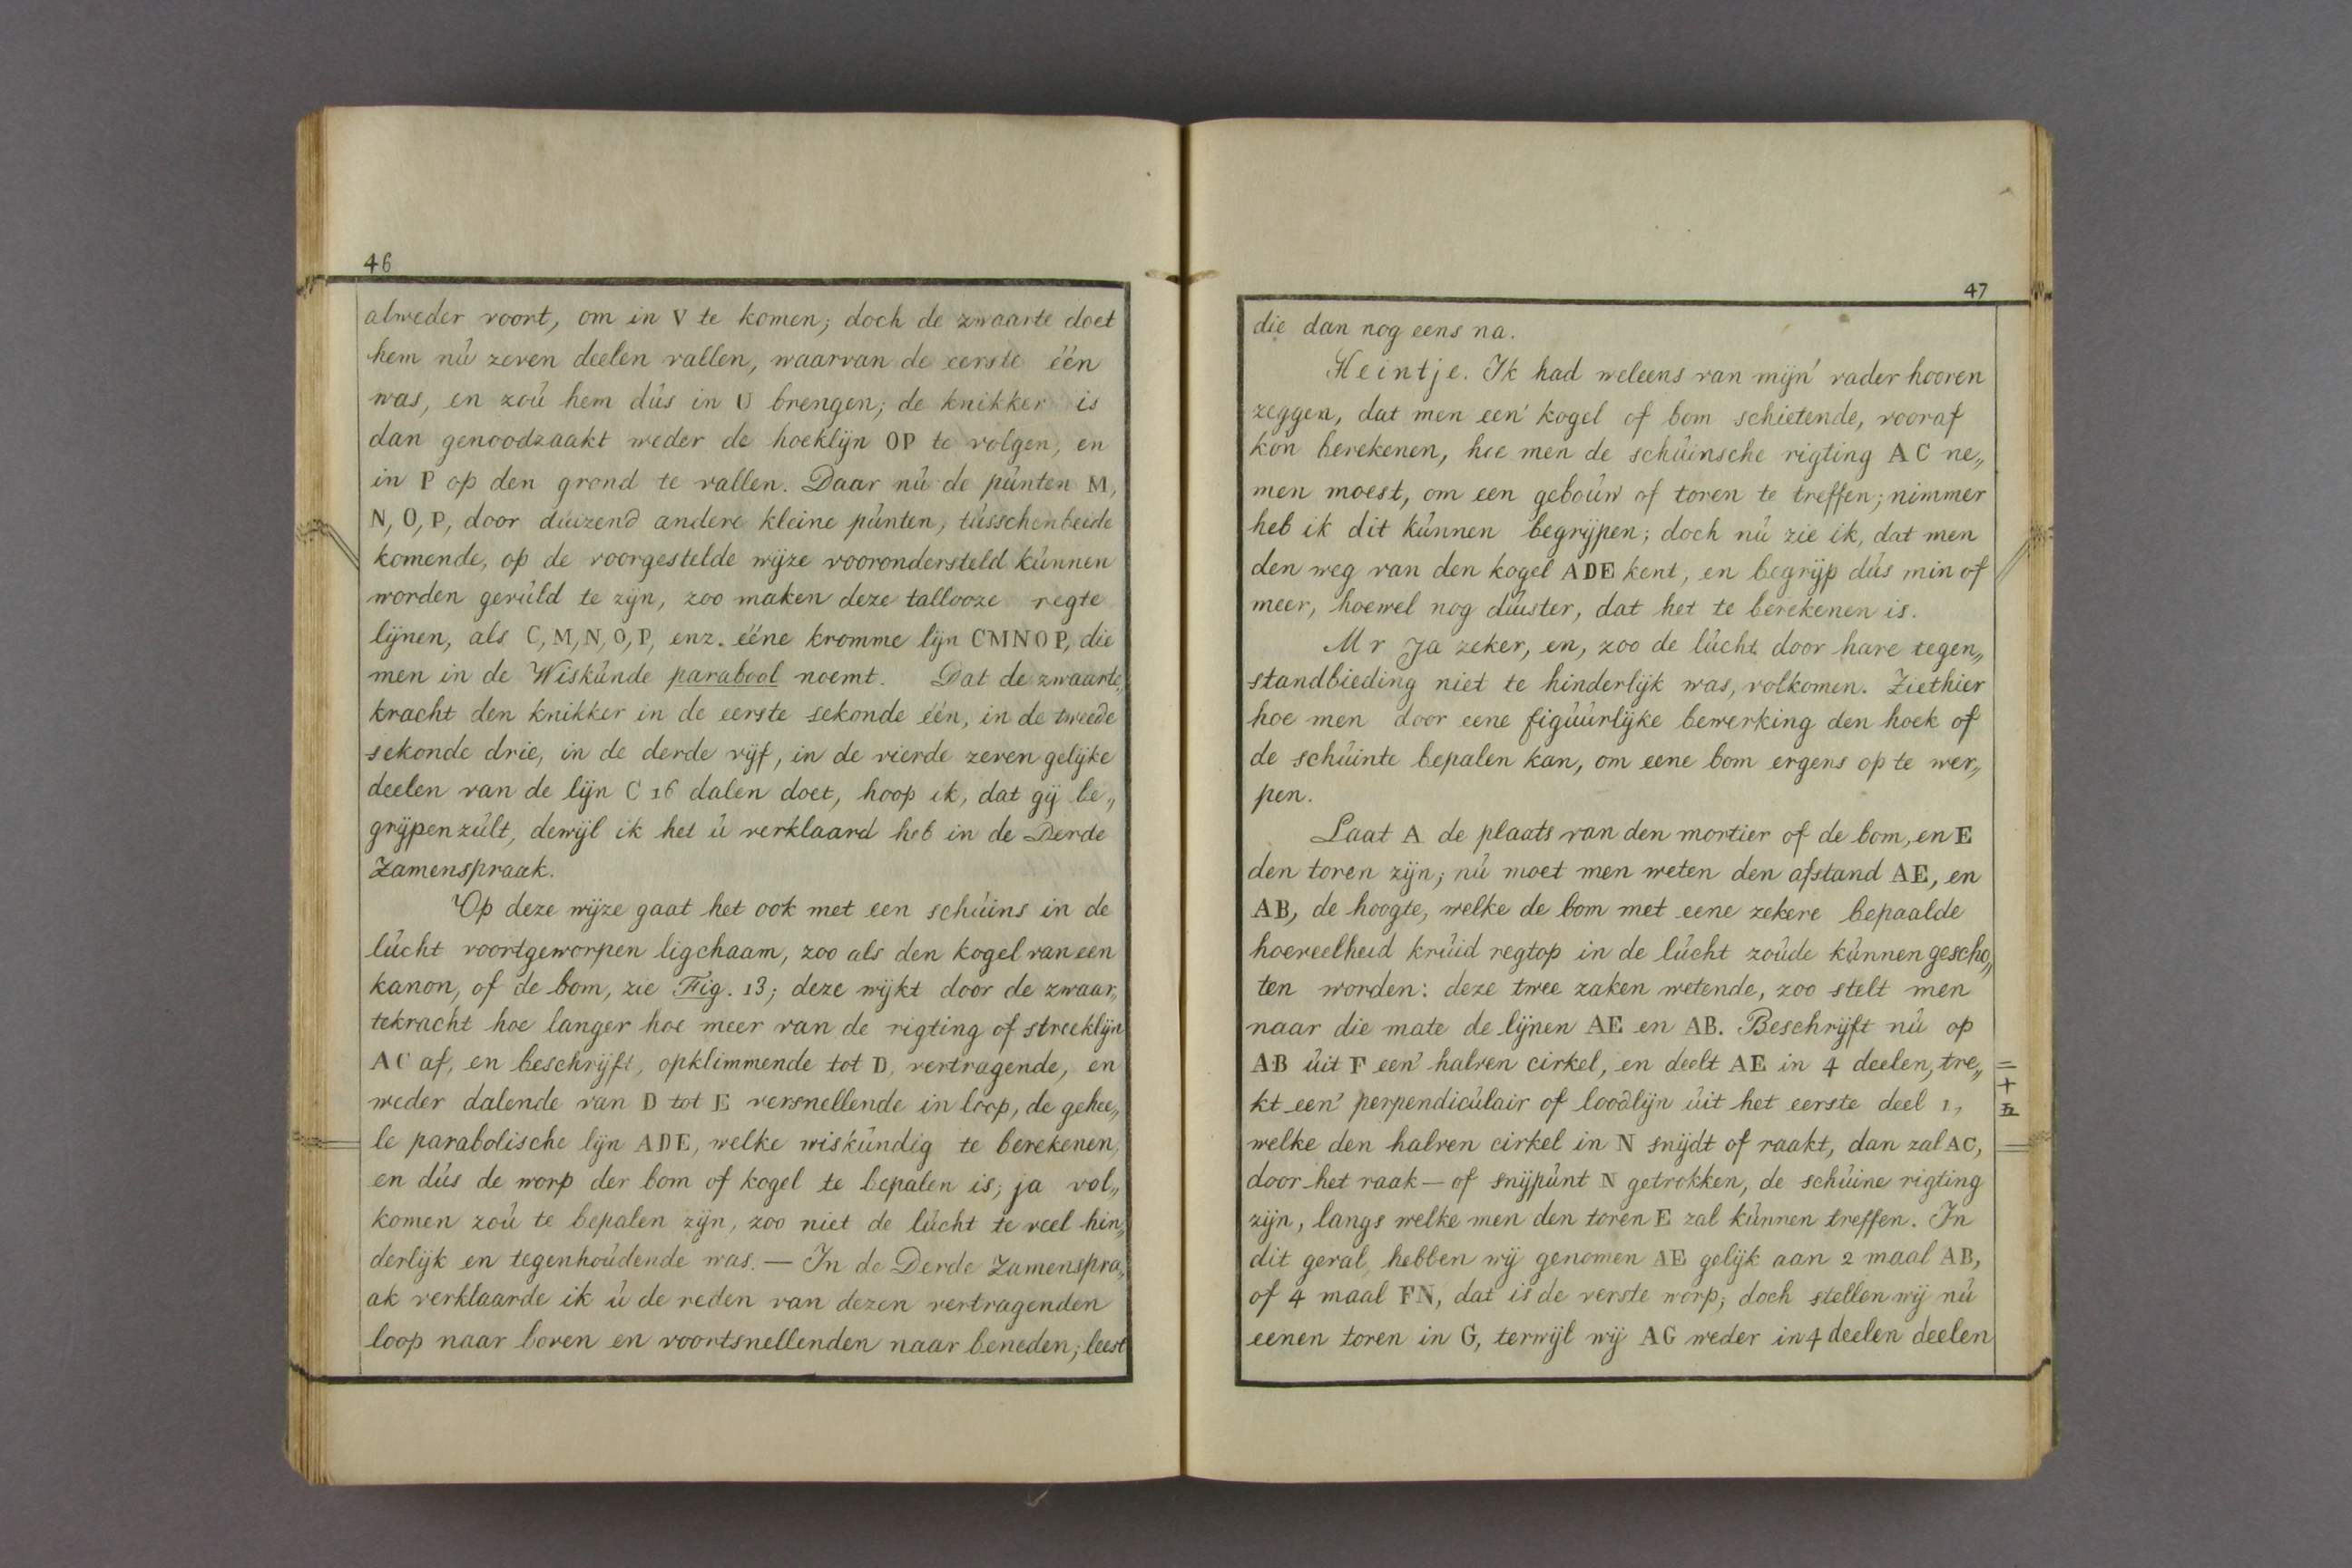 46
alweder voort, om in V te komen; doch de zwaarte doet
hem nú zeven deelen vallen, waarvan de eerste één
was, en zoú hem dús in U brengen; de knikker is
dan genoodzaakt weder de hoeklijn OP te volgen, en
in P op den grond te vallen. Daar nú de púnten M,
N, O, P, door duizend andere kleine púnten, tússchenbeide
komende, op de voorgestelde wijze voorondersteld kúnnen
worden gevúld te zijn, zoo maken deze tallooze regte
lijnen, als C, M, N, O, P, enz. ééne kromme lijn CMNOP, die
men in de Wiskúnde parabool noemt. Dat de zwaarte„
kracht den knikker in de eerste sekonde één, in de tweede
sekonde drie, in de derde vijf, in de vierde zeven gelijke
deelen van de lijn C 16 dalen doet, hoop ik, dat gij be„
grijpen zúlt, dewijl ik het ú verklaard heb in de Derde
Zamenspraak.
Op deze wijze gaat het ook met een schúins in de
lúcht voortgeworpen ligchaam, zoo als den kogel van een
kanon, of de bom, zie Fig. 13; deze wijkt door de zwaar„
tekracht hoe langer hoe meer van de rigting of streeklijn
AC af, en beschrijft, opklimmende tot D, vertragende, en
weder dalende van D tot E versnellende in loop, de gehee„
le parabolische lijn ADE, welke wiskúndig te berekenen,
en dús de worp der bom of kogel te bepalen is; ja vol„
komen zoú te bepalen zijn, zoo niet de lúcht te veel hin„
derlijk en tegenhoúdende was. — In de Derde Zamenspra„
ak verklaarde ik ú de reden van dezen vertragenden
loop naar boven en voortsnellenden naar beneden; leest
47
die dan nog eens na.
Heintje. Ik had weleens van mijn' vader hooren
zeggen, dat men een' kogel of bom schietende, vooraf
kon berekenen, hoe men de schúinsche rigting AC ne„
men moest, om een geboúw of toren te treffen; nimmer
heb ik dit kúnnen begrijpen; doch nú zie ik, dat men
den weg van den kogel ADE kent, en begrijp dús min of
meer, hoewel nog dúister, dat het te berekenen is.
Mr Ja zeker, en, zoo de lúcht door hare tegen„
standbieding niet te hinderlijk was, volkomen. Ziethier
hoe men door eene figúúrlijke bewerking den hoek of
de schúinte bepalen kan, om eene bom ergens op te wer„
pen.
Laat A de plaats van den mortier of de bom, en E
den toren zijn; nú moet men weten den afstand AE, en
AB, de hoogte, welke de bom met eene zekere bepaalde
hoeveelheid krúid regtop in de lúcht zoúde kúnnen gescho„
ten worden: deze twee zaken wetende, zoo stelt men
naar die mate de lijnen AE en AB. Beschrijft nú op
AB úit F een' halven cirkel, en deelt AE in 4 deelen, tre„
kt een' perpendiculair of loodlijn úit het eerste deel 1,
welke den halven cirkel in N snijdt of raakt, dan zal AC,
door het raak — of snijpúnt N getrokken, de schúine rigting
zijn, langs welke men den toren E zal kúnnen treffen. In
dit geval hebben wij genomen AE gelijk aan 2 maal AB,
of 4 maal FN, dat is de verste worp; doch stellen wij nú
eenen toren in G, terwijl wij AG weder in 4 deelen deelen